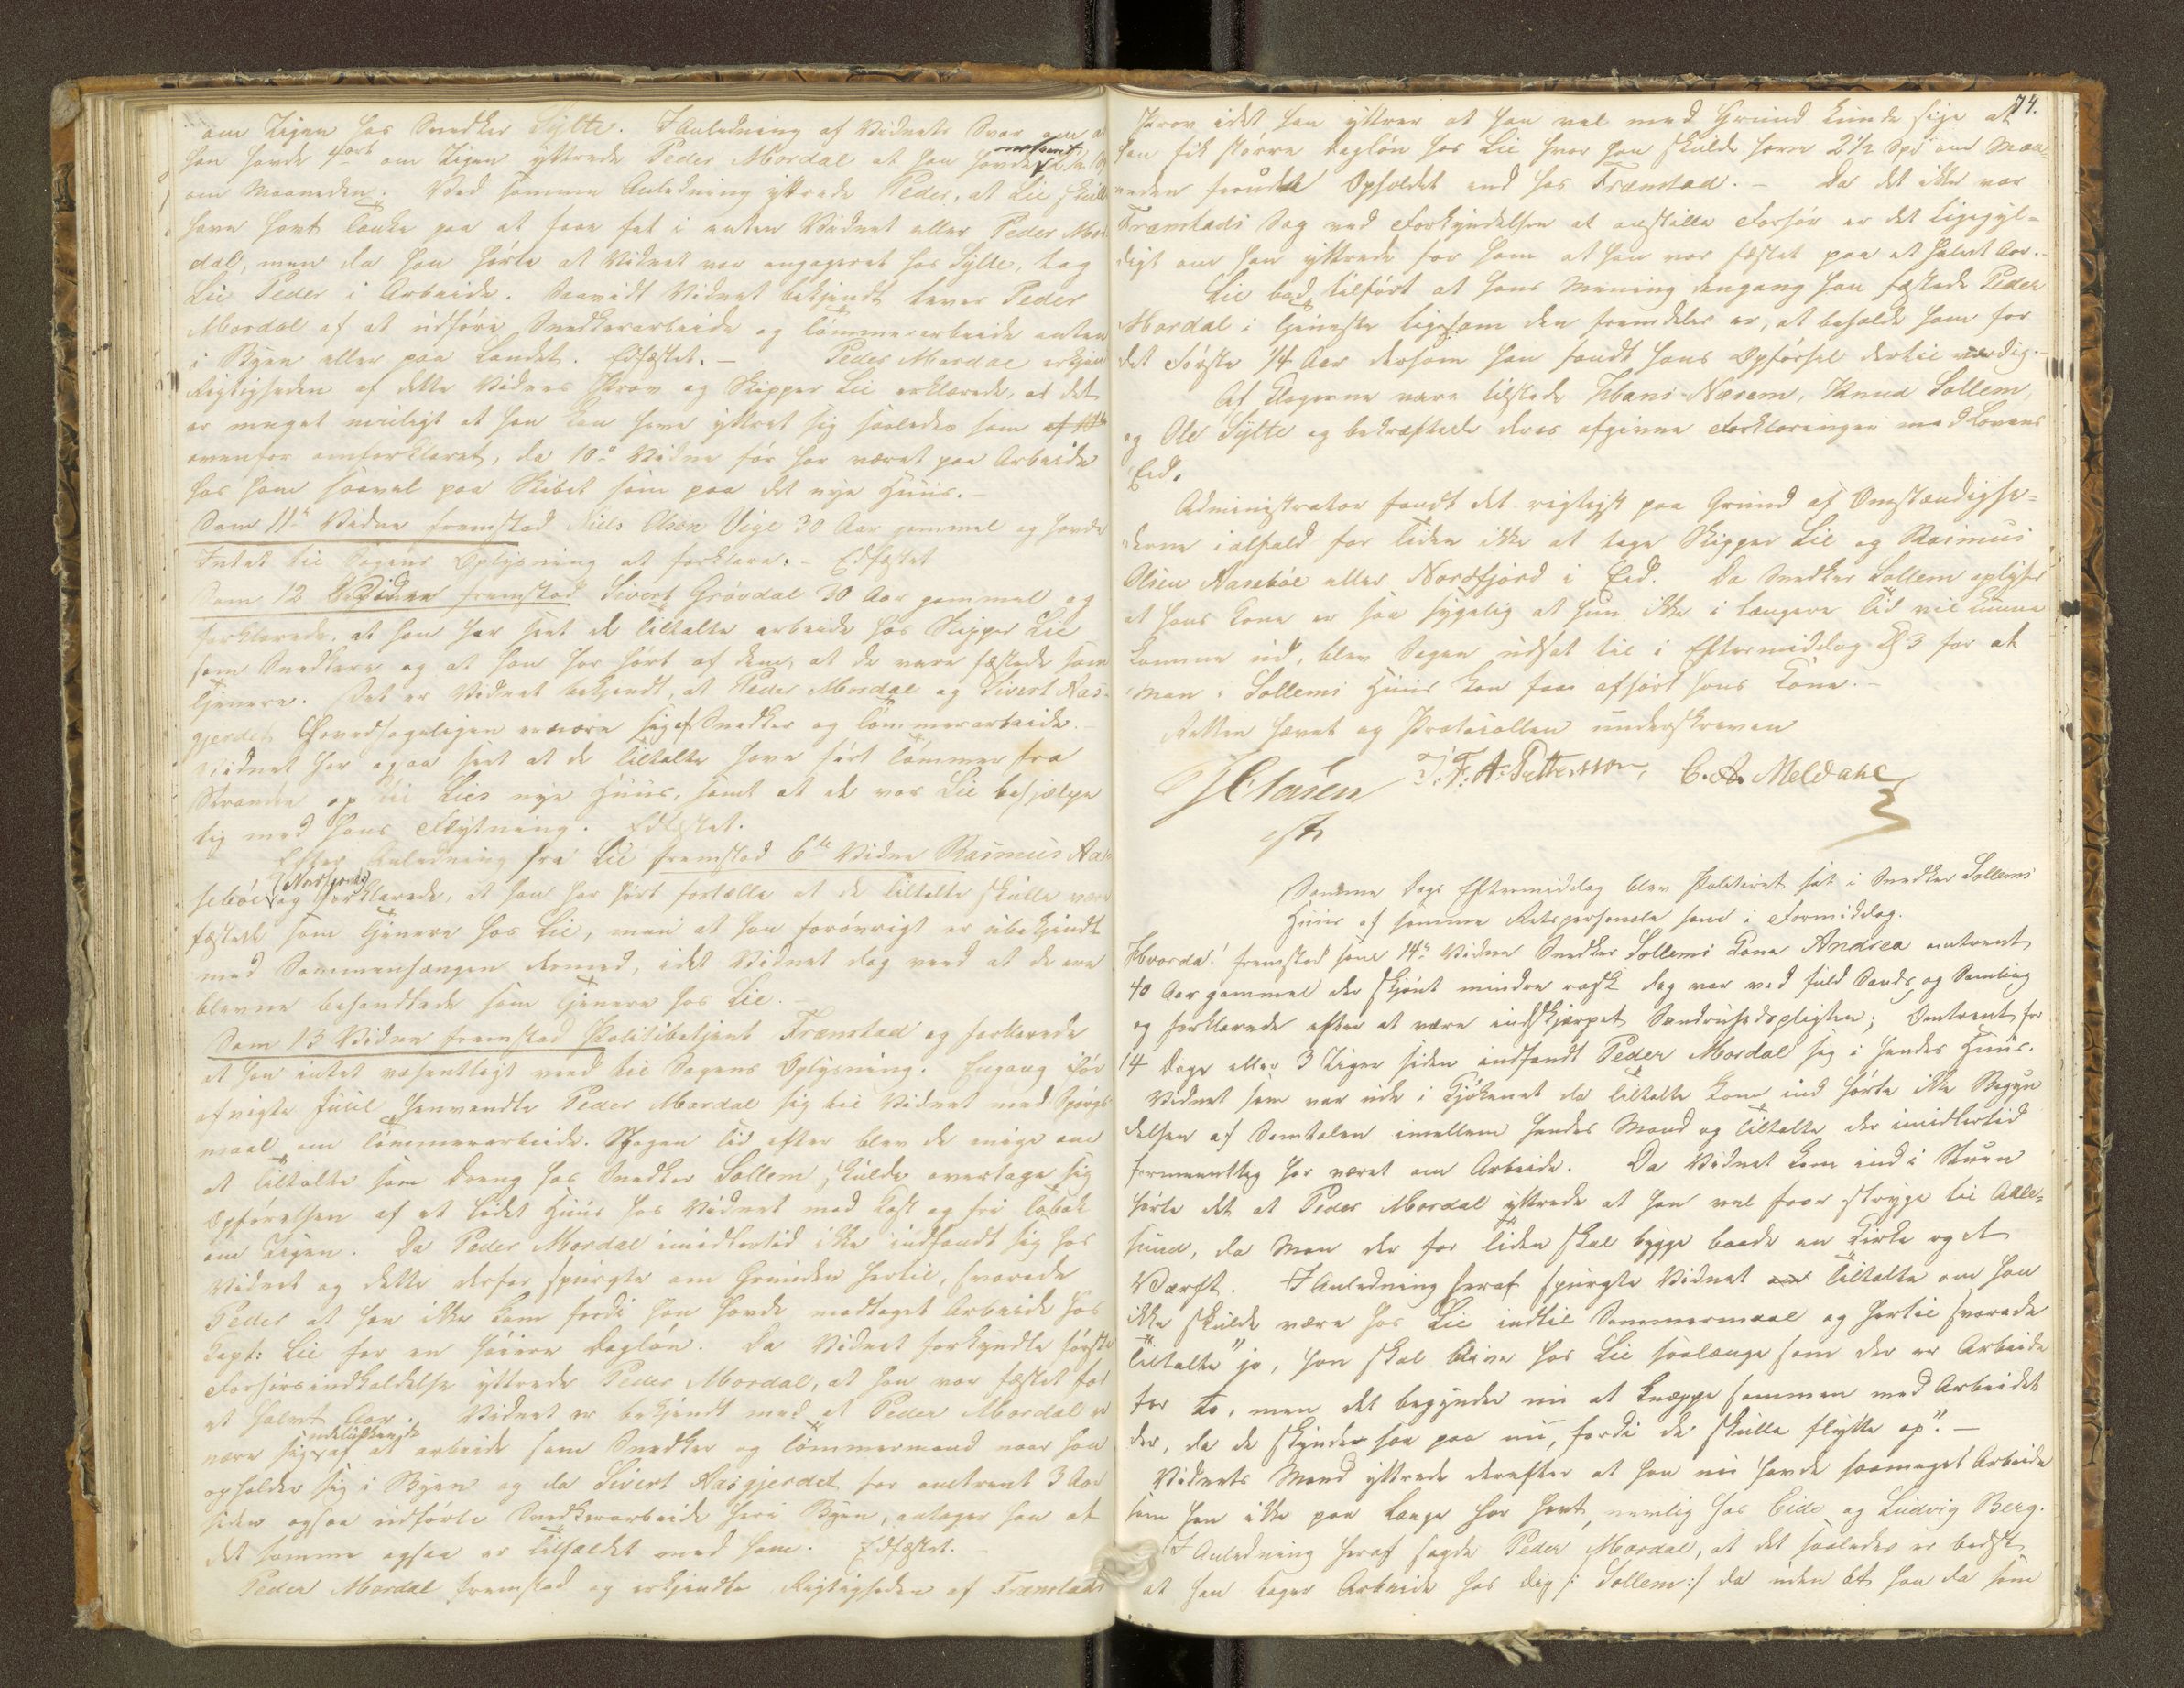 om Ugen hos Snedker Sylte. I Anledning af Vidnets Svar om at
han havde 1 ort om Ugen yttrede Peder Mordal at han havde
om Maaneden. Ved samme Anledning yttrede Peder, at Lie skulle
have havt Tanke paa at faae fat i enten Vidnet eller Peder Mor
dal, men da han hørte at Vidnet var engageret hos Sylte, tog
Lie Peder i Arbeide. Saavidt Vidnet bekjendt lever Peder
Mordal af at udføre Snedkerarbeide og Tømmerarbeide enten
i Byen eller paa Landet. Edfæstet. – Peder Mordal erkjendte
Rigtigheden af dette Vidnes Prov og Skipper Lie erklærede, at det
er meget muligt at han kan have yttret sig saaledes som
ovenfor omforklaret, da 10de Vidne før har været paa Arbeide
hos ham saavel paa Skibet som paa det nye Huus. –
Som 11te Vidne fremstod Niels Olsen Vige 30 Aar gammel og havde
Intet til Sagens Oplysning at forklare. – Edfæstet
Som 12 Vidne fremstod Sivert Grøvdal 30 Aar gammel og
forklarede, at han har seet de Tiltalte arbeide hos Skipper Lie
som Snedkere og at han har hørt af dem, at de vare fæstede som
Tjenere. Det er Vidnet bekjendt, at Peder Mordal og Sivert Aas-
gjerdet hovedsageligen ernære sig af Snedker og Tømmerarbeide. –
Vidnet har ogsaa seet at de Tiltalte have ført Tømmer fra
Stranden op til Lies nye Huus, samt at de var Lie behjælpe
lig med hans Flytning. Edfæstet.
Efter Anledning fra Lie fremstod 6te Vidne Rasmus Aa
sebøe (Nordfjord:) og forklarede, at han har hørt fortælle at de Tiltalte skulle være
fæstede som Tjenere hos Lie, men at han forøvrigt er ubekjendt
med Sammenhængen dermed, idet Vidnet dog veed at de ere
blevne behandlede som Tjenere hos Lie. –
Som 13 Vidne fremstod Politibetjent Framstad og forklarede
at han intet væsentligt veed til Sagens Oplysning. Engang før
afvigte Juul henvendte Peder Mordal sig til Vidnet med Spørgs
maal om Tømmerarbeide. Nogen Tid efter blev de enige om
at Tiltalte som Dreng hos Snedker Sollem, skulde overtage sig
Opførelsen af et lidet Huus hos Vidnet med Kost og fri Tobak
om Ugen. Da Peder Mordal imidlertid ikke indfandt sig hos
Vidnet og dette derfor spurgte om Grunden hertil, svarede
Peder at han ikke kom fordi han havde modtaget Arbeide hos
Capt: Lie for en høiere Dagløn. Da Vidnet forkyndte første
Forhørsindkaldelse yttrede Peder Mordal, at han var fæstet for
et halvt Aar. Vidnet er bekjendt med at Peder Mordal er
nære sig udelukkende af at arbeide som Snedker og Tømmermand naar han
opholder sig i Byen og da Sivert Aasgjerdet for omtrent 3 Aar
siden ogsaa udførte Snedkerarbeide her i Byen, antager han at
det samme ogsaa er Tilfældet med ham. Edfæstet. –
Peder Mordal fremstod og erkjendte Rigtigheden af Framstads
74.
Prov idet han yttrer at han vel med Grund kunde sige at
han fik større Dagløn hos Lie hvor han skulde have 2 1/2 Spd om Maa-
neden foruden Opholdet end hos Framstad. – Da det ikke var
Framstads Sag ved Forkyndelsen at anstille Forhør er det ligegyl-
digt om han yttrede for ham at han var fæstet paa et halvt Aar. –
Lie bad tilført at hans Mening dengang han fæstede Peder
Mordal i Tjeneste ligesom den fremdeles er, at beholde ham for
det Første 1/4 Aar dersom han fandt hans Opførsel dertil værdig. –
Af Klagerne vare tilstede Hans Nærem, Knud Sollem,
og Ole Sylte og bekræftede deres afgivne Forklaringer med Lovens
Eed.
Administrator fandt det rigtigst paa Grund af Omstændighe-
derne ialfald for Tiden ikke at tage Skipper Lie og Rasmus
Olsen Aasebøe eller Nordfjord i Eed. Da Snedker Sollem oplyser
at hans Kone er saa sygelig at hun ikke i længere Tid vil kunne
komme ud, blev Sagen udsat til i Eftermiddag Kl 3 for at
man i Sollems Huus kan faae afhørt hans Kone. –
Retten hævet og Protocollen underskreven
J Clausen J. F. A. Pettersson, C. A. Meldahl
Samme Dags Eftermiddag blev Politiret sat i Snedker Sollems
Huus af samme Retspersonale som i Formiddag.
Hvorda! fremstod som 14de Vidne Snedker Sollems Kone Andrea omtrent
40 Aar gammel der skjønt mindre rask dog var ved fuld Sands og Samling
og forklarede efter at være indskjærpet Sandhedspligten; Omtrent for
14 Dage eller 3 Uger siden indfandt Peder Mordal sig i hendes Huus.
Vidnet som var ude i Kjøkenet da Tiltalte kom ind hørte ikke Begyn
delsen af Samtalen imellem hendes Mand og Tiltalte der imidlertid
formeentlig har været om Arbeide. Da Vidnet kom ind i Stuen
hørte det at Peder Mordal yttrede at han vel faar stryge til Aale-
sund, da man der for Tiden skal bygge baade en Kirke og et
Værft. I Anledning heraf spurgte Vidnet Tiltalte om han
ikke skulde være hos Lie indtil Sommermaal og hertil svarede
Tiltalte "jo, han skal blive hos Lie saalænge som der er Arbeide
for to, men det begynder nu at knappe sammen med Arbeidet
der, da de skynder saa paa nu, fordi de skulle flytte op". –
Vidnets Mand yttrede derefter at han nu havde saameget Arbeide
som han ikke paa længe har havt, nemlig hos Eide og Ludvig Berg.
I Anledning heraf sagde Peder Mordal, at det saaledes er bedst
at han tager Arbeide hos dig /: Sollem:/ da uden at han da som